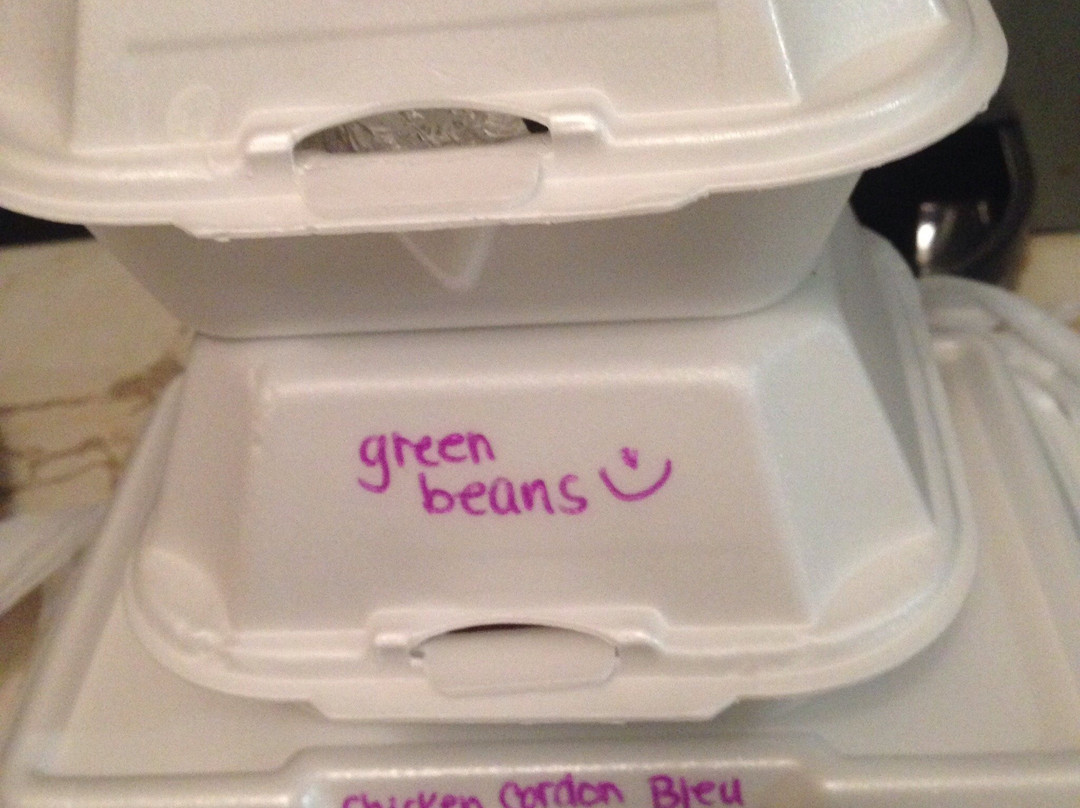 green
beans
Chicken Cordon Bleu